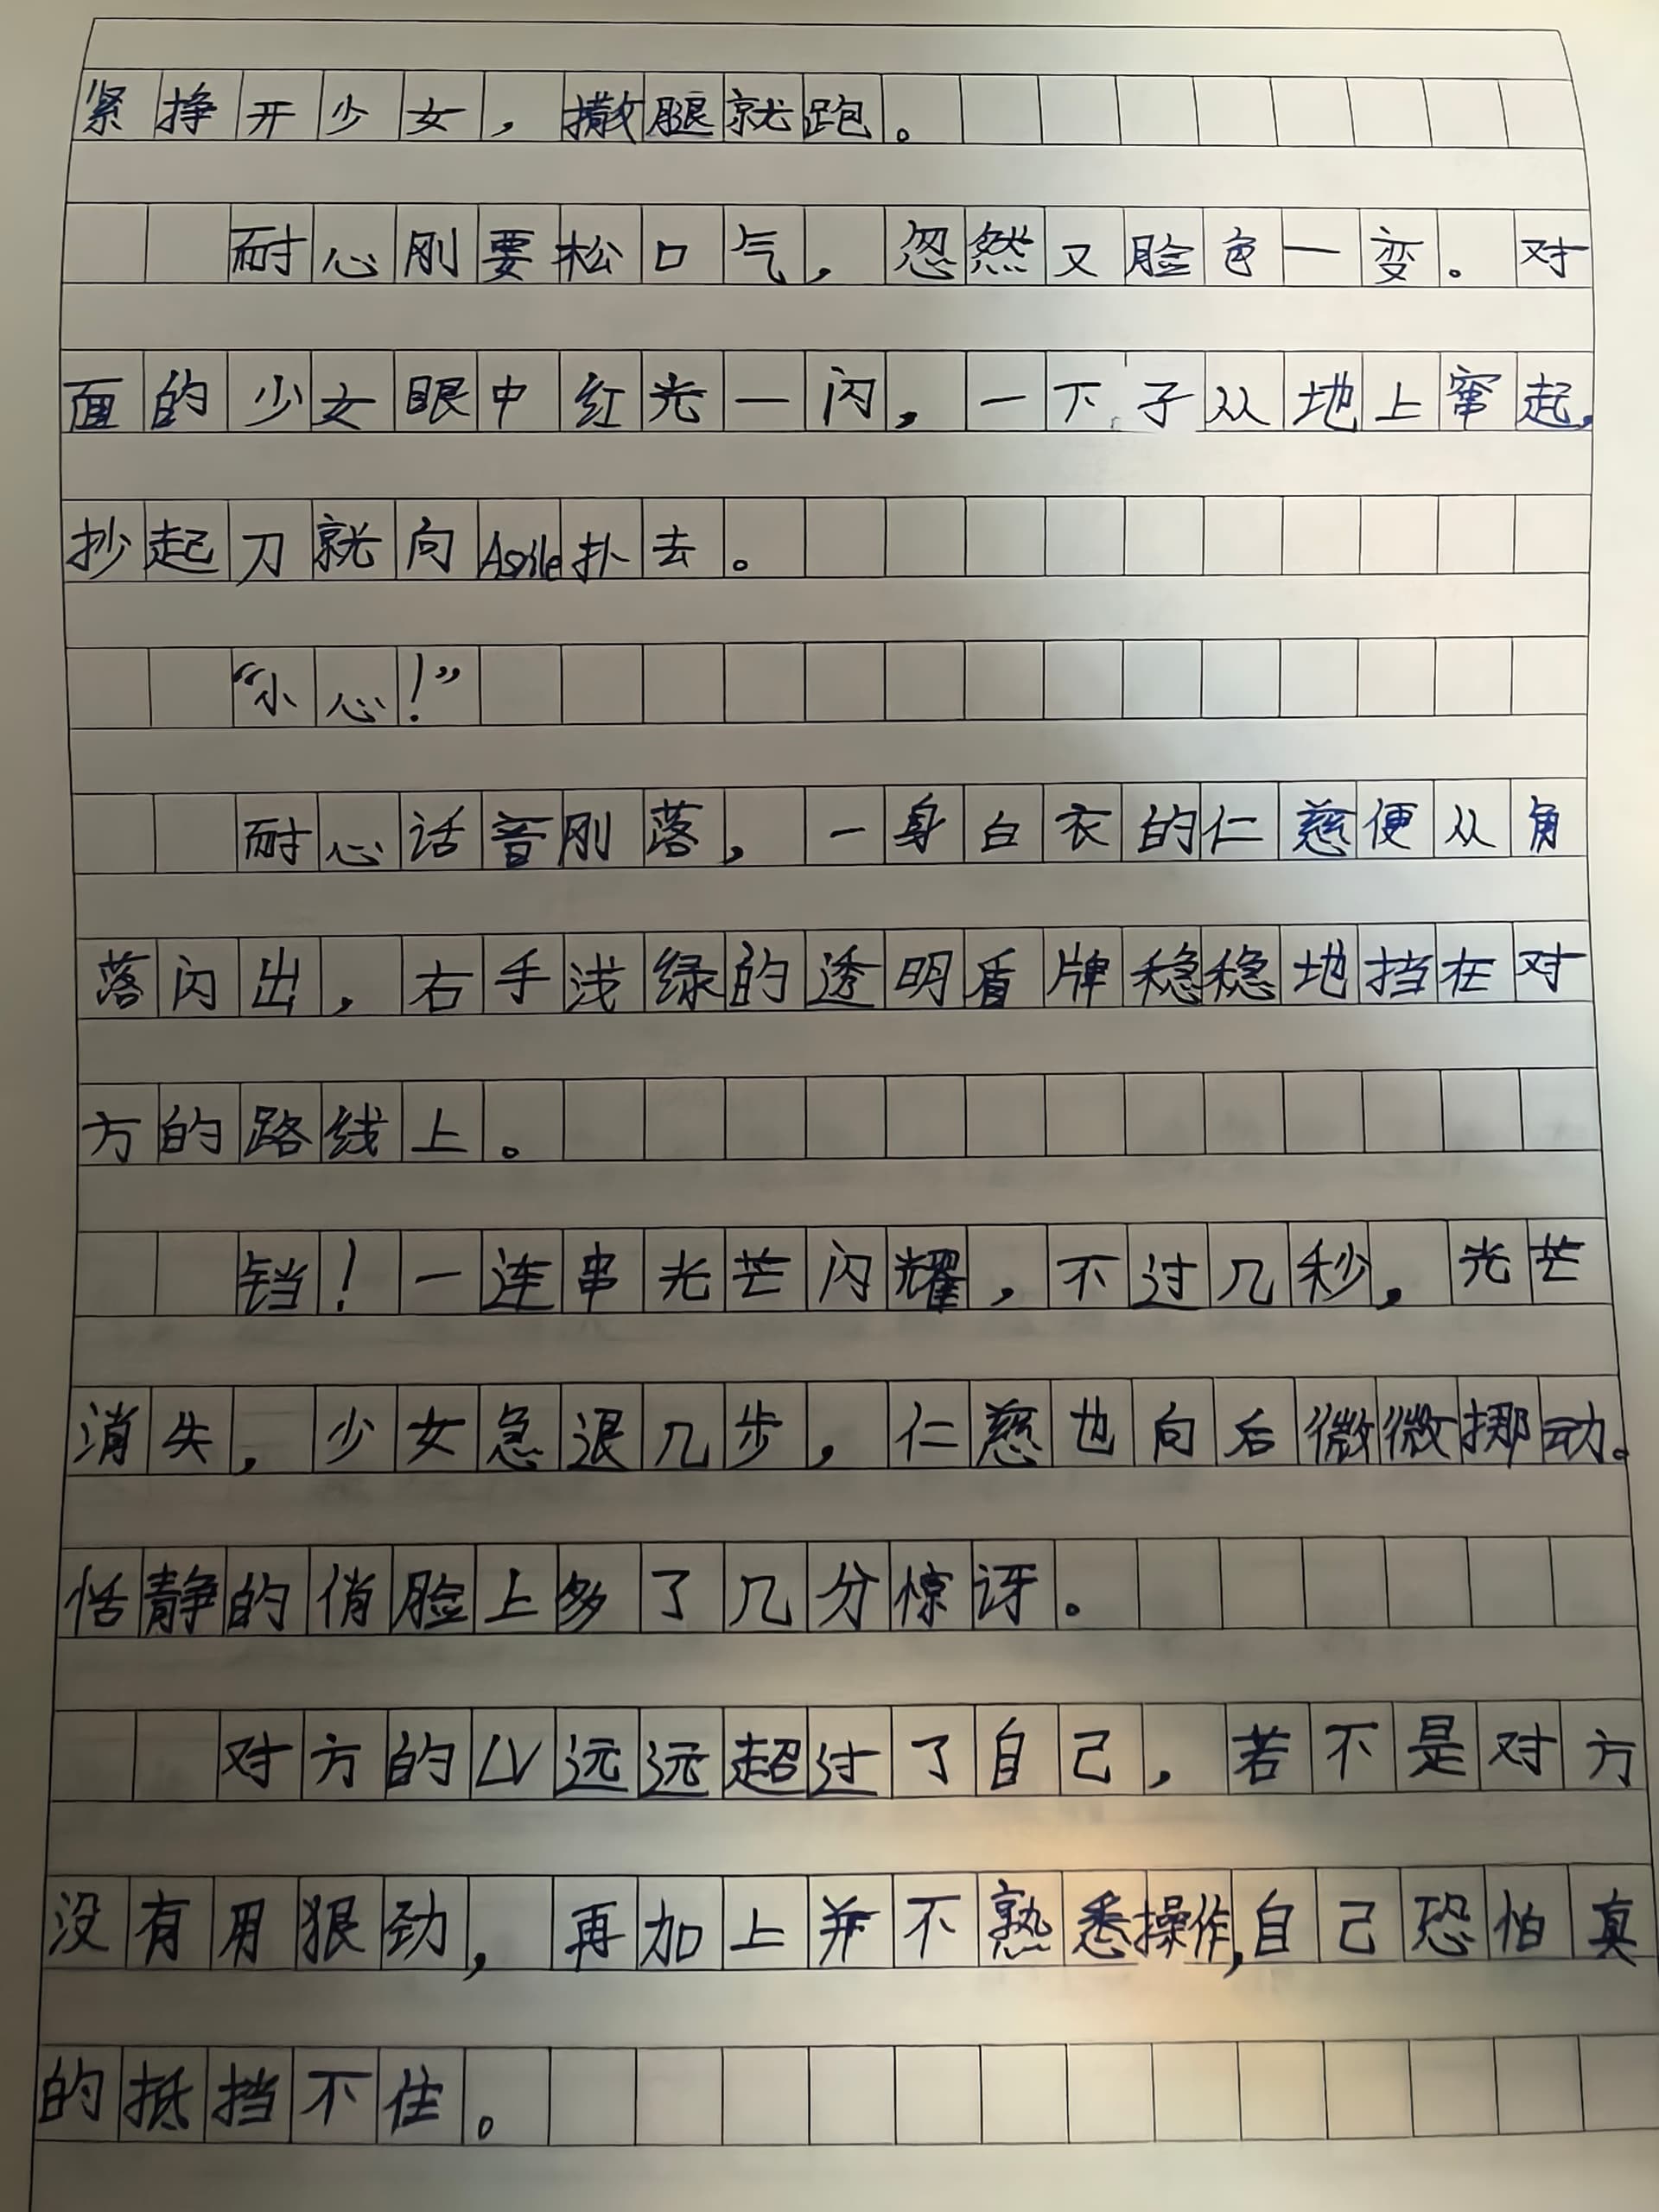 紧挣开少女，撒腿就跑。
耐心刚要松口气，忽然又脸色一变。对
面的少女眼中红光一闪，一下子从地上窜起，
抄起刀就向Agile扑去。
“小心！”
耐心话音刚落，一身白衣的仁慈便从角
落闪出，右手浅绿的透明盾牌稳稳地挡在对
方的路线上。
铛！一连串光芒闪耀，不过几秒，光芒
消失，少女急退几步，仁慈也向后微微挪动。
恬静的俏脸上多了几分惊讶。
对方的LV远远超过了自己，若不是对方
没有用狠劲，再加上并不熟悉操作，自己恐怕真
的抵挡不住。